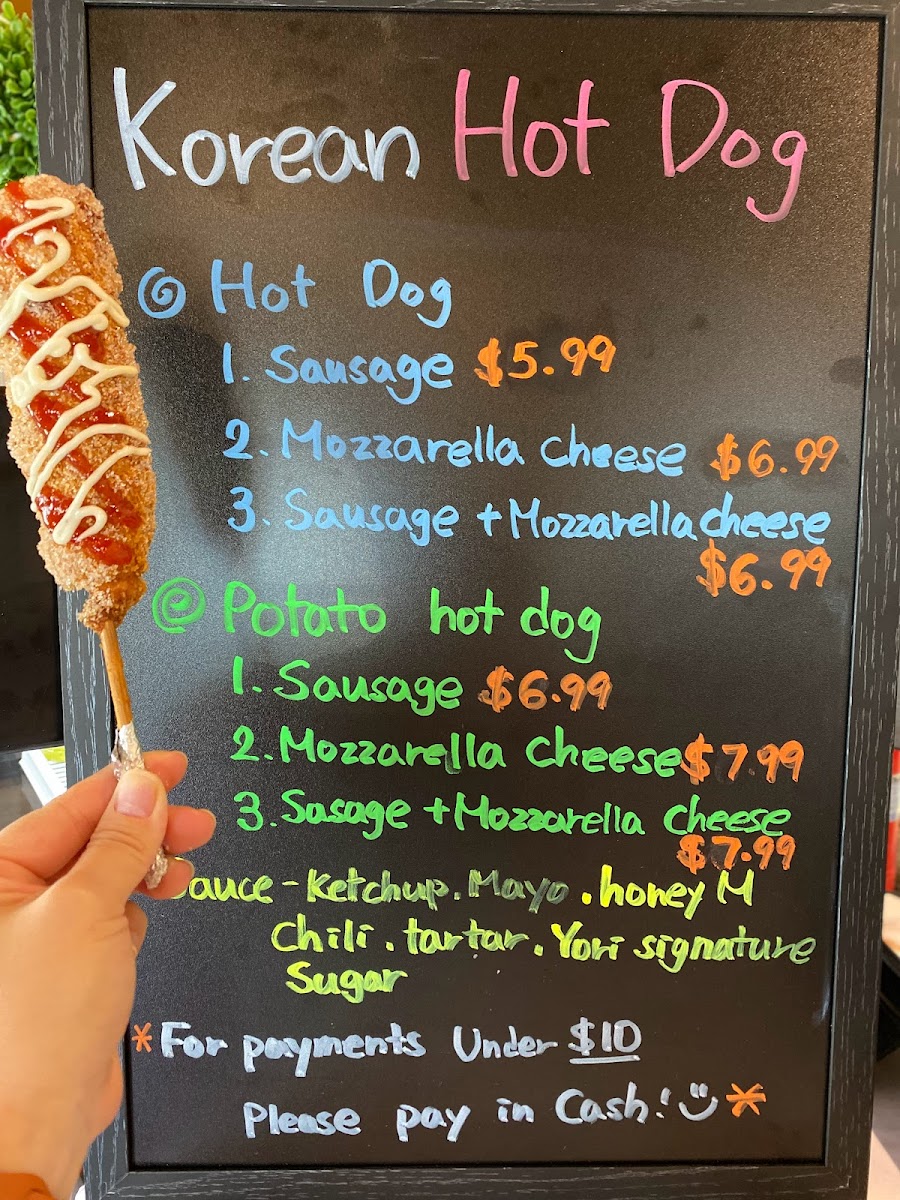 Korean Hot Dog
Hot Dog
1. Sausage $5.99
2. Mozzarella cheese $6.99
3. Sausage + Mozzarella cheese
$6.99
Potato hot dog
1. Sausage $6.99
2. Mozzarella cheese $7.99
3. Sasage + Mozzarella cheese
$7.99
auce - Ketchup. Mayo. honey M
Chili. tartar. Yori signature
Sugar
*For payments Under $10
Please pay in Cash! *